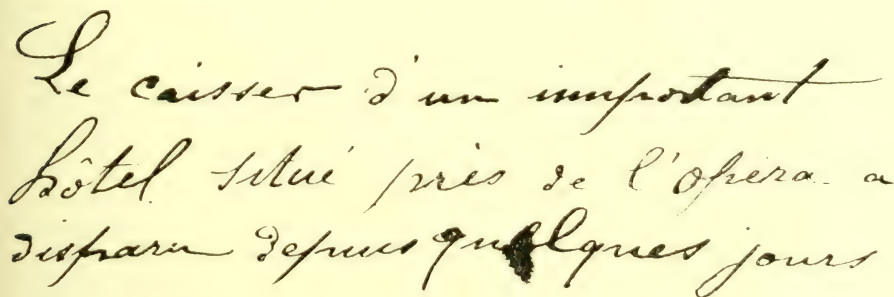 Le caisser d'un immportant
hôtel situé près de l'Opéra a
disparu depuis quelques jours